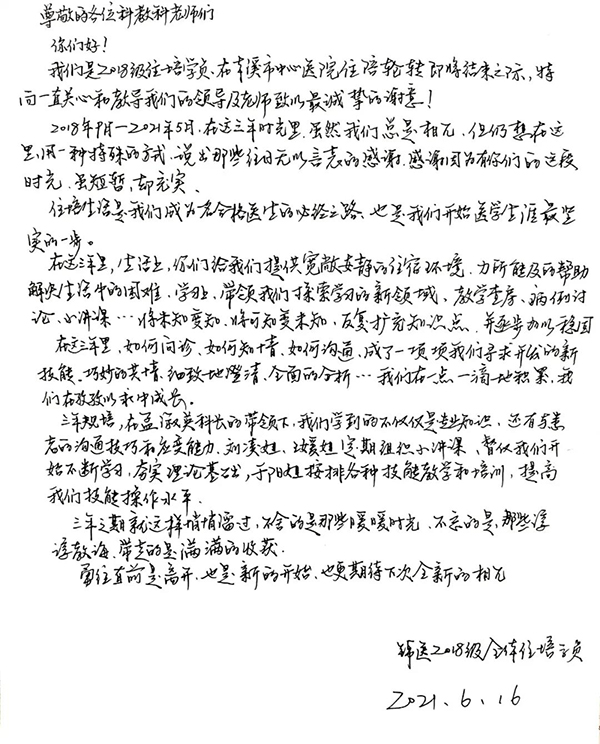 尊敬的各位科教科老师们
你们好！
我们是2018级住培学员，在本溪市中心医院住陪轮转即将结束之际，特
向一直关心和教导我们的领导及老师致以最诚挚的谢意！
2018年9月—2021年5月，在这三年时光里，虽然我们总是相见，但仍想在这
里，用一种特殊的方式，说出那些往日无以言表的感谢，感谢因为有你们的这段
时光，虽短暂，却充实、
住培生活是我们成为一名合格医生的必经之路，也是我们开始医学生涯最坚
实的一步。
在这三年里，生活上，你们给我们提供宽敞安静的住宿环境，力所能及的帮助
解决生活中的困难，学习上，带领我们探索学习的新领域，教学查房、病例讨
论、小讲课…将未知变知，将可知变未知，反复扩充知识点，并逐步加以稳固
在这三年里，如何问诊、如何知情、如何沟通，成了一项项我们寻求开公的新
技能，巧妙的共情，细致地澄清，全面的分析…我们在一点一滴地积累，我
们在孜孜以求中成长。
三年规培，在孟淑英科长的带领下，我们学到的不仅仅是专业知识，还有与患
者的沟通技巧和应变能力，刘凑姐、媛姐定期组织小讲课、督促我们开
始不断学习，夯实理论基础，于阳姐按排各种技能教学和培训，提高
我们技能操作水平
三年之期就这样悄悄溜过，不舍的是那些暖暖时光，不忘的是那些谆
谆教诲，带走的是满满的收获．
勇往直前是离开，也是新的开始，也更期待下次全新的相见
锦医2018级全体住培学员
2021.6.16